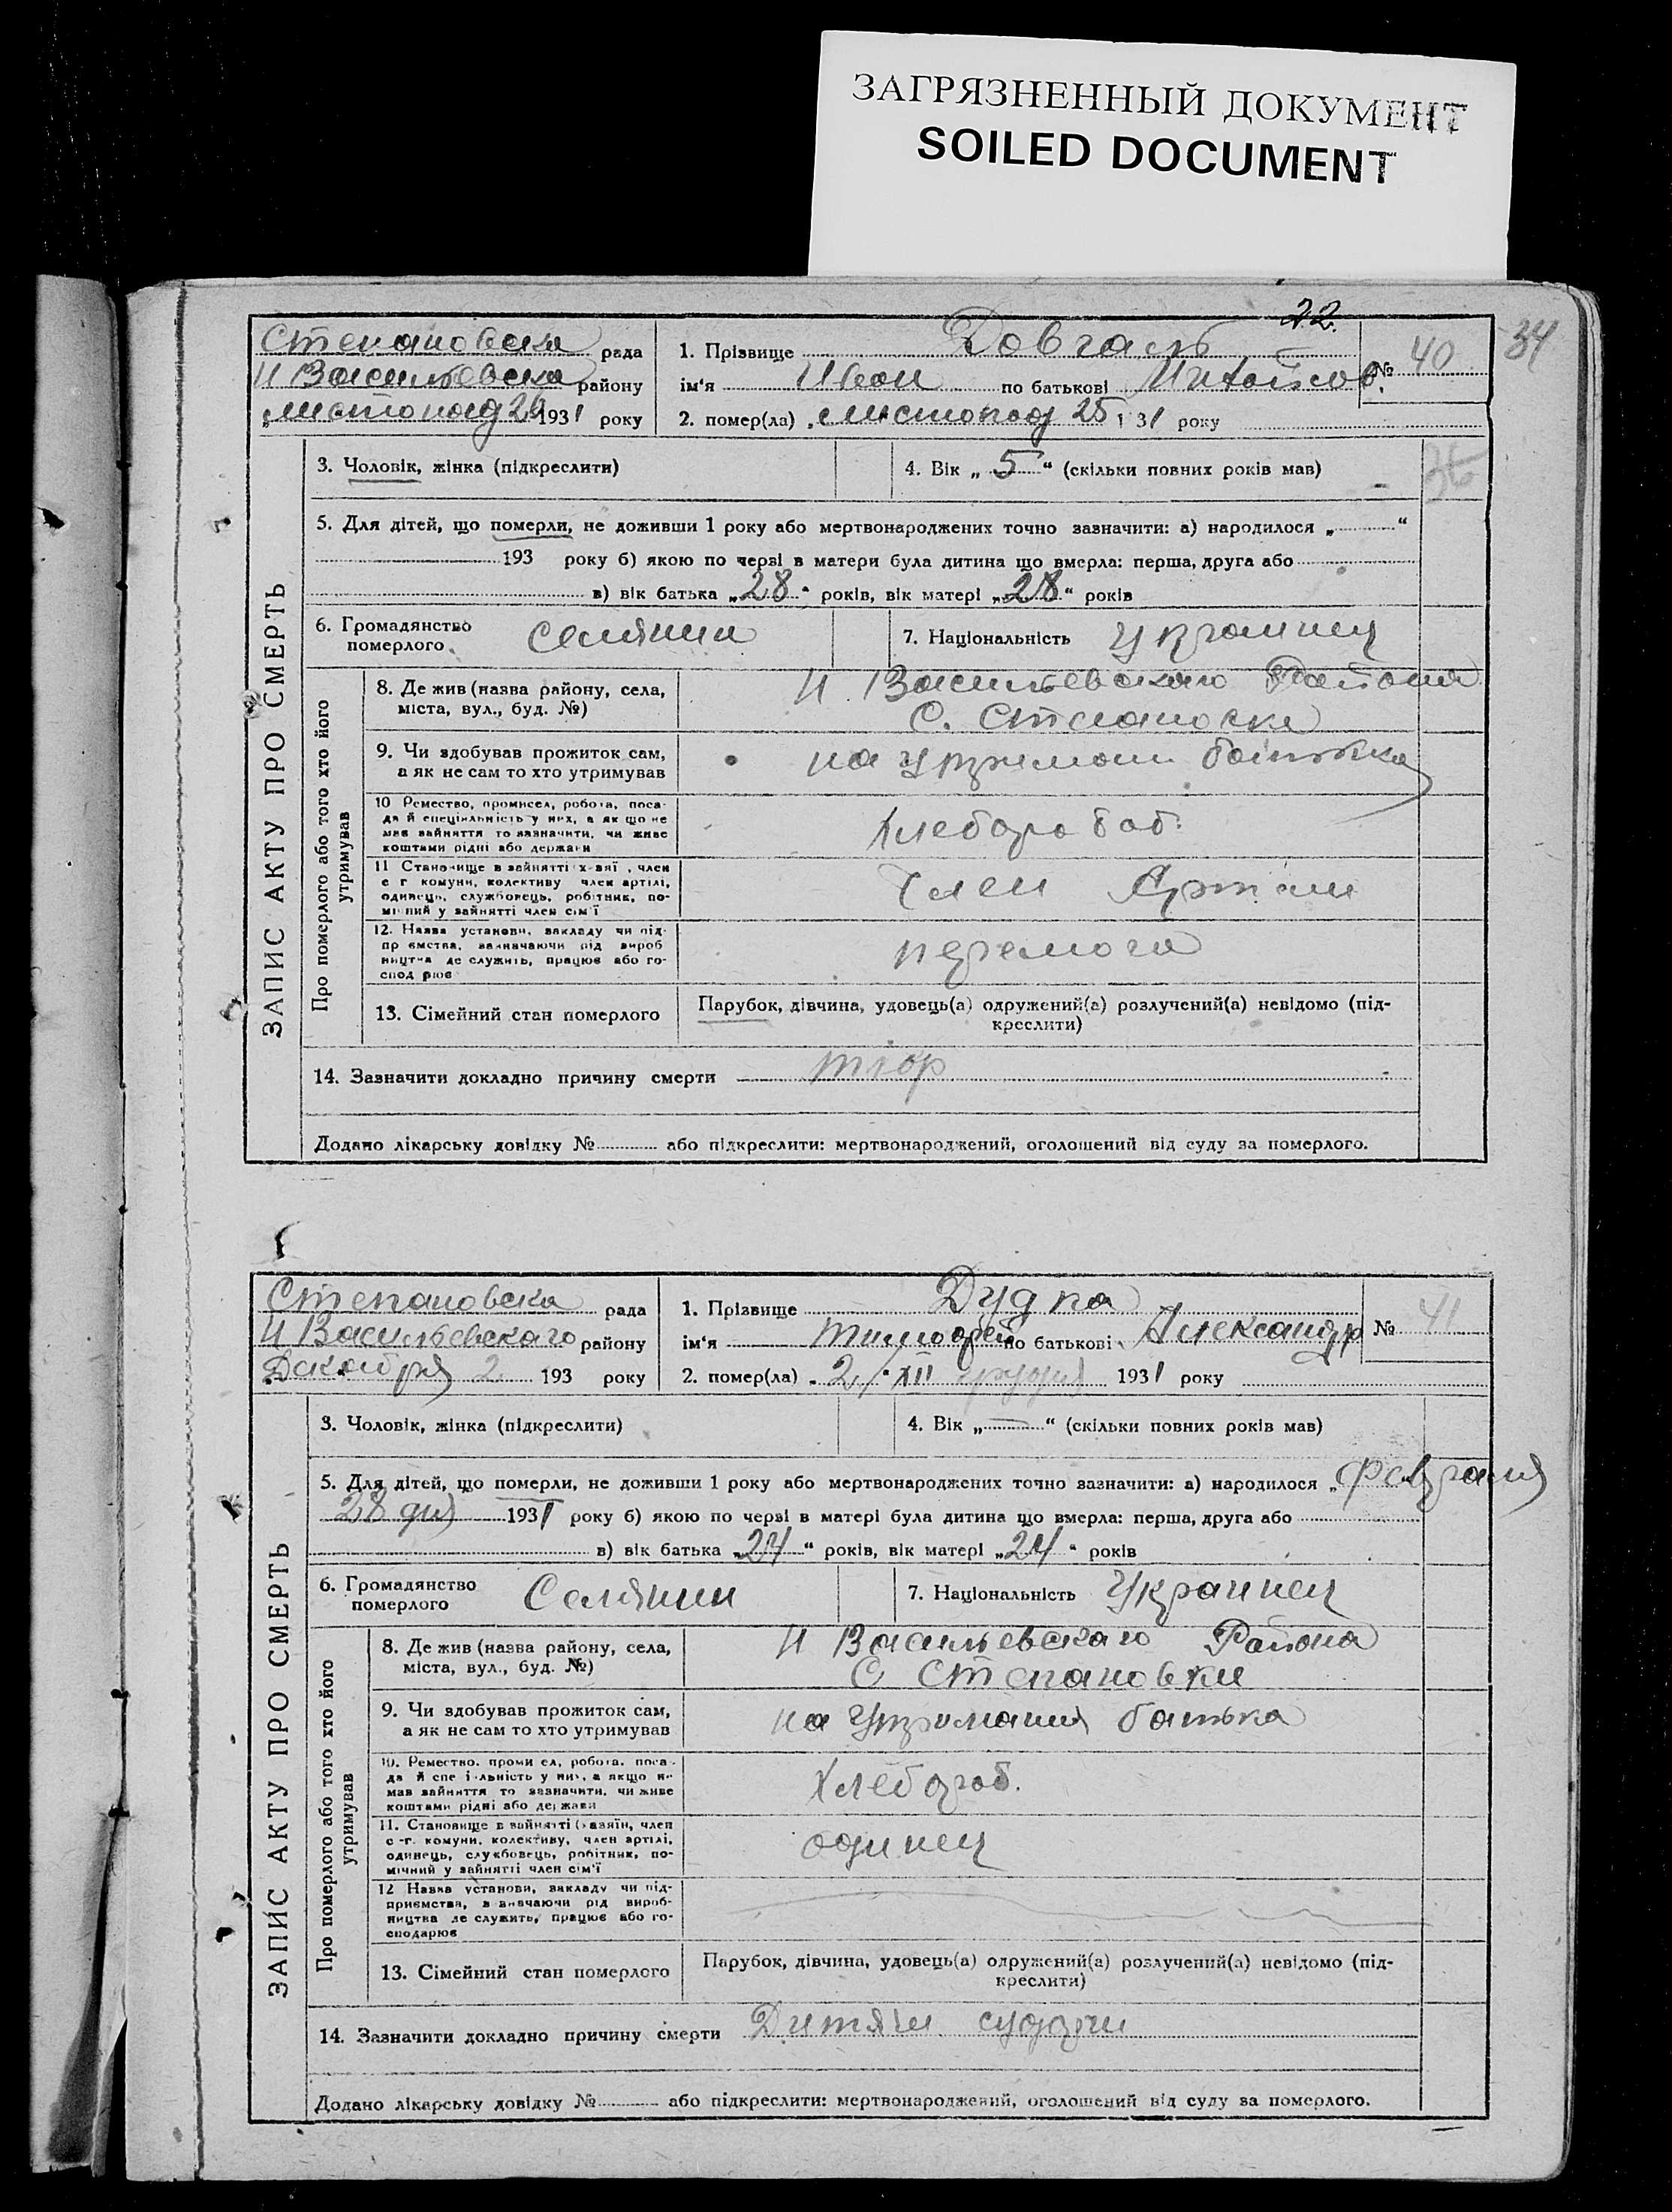 ЗАГРЯЗНЕННЫЙ ДОКУМЕНТ
SOILED DOCUMENT
22.
34
Степановска рада
Н Васильевска району
листопад 26 1931 року
1. Прізвище Довгаль
ім'я Иван по батькові
№ 40
2. помер(ла) листопад 25 131 року
3. Чоловік, жінка (підкреслити)
4. Вік „5“ (скільки повних років мав)
36
5. Для дітей, що померли, не доживши 1 року або мертвонароджених точно зазначити: а) народилося „ “
193 року б) якою по черзі в матери була дитина що вмерла: перша, друга або
в) вік батька „28“ років, вік матері „28“ років
6. Громадянство померлого селянин
7. Національність Украинец
ЗАПИС АКТУ ПРО СМЕРТЬ
Про померлого або того хто його утримував
8. Де жив (назва району, села, міста, вул., буд. №)
Н Васильевского Района
С. Степановка
9. Чи здобував прожиток сам, а як не сам то хто утримував
на утриман батька
10 Ремество, промисел, робота, поса-
да й спеціяльність у них, а як що не
мав зайняття то зазначити, чи живе
коштами рідні або держави
Хлебороб.
11 Становище в зайнятті х-зяї , член
с г комуни, колективу член артілі,
одинець, службовець, робітник, по-
мічний у зайнятті член сім'ї
Член Артели
12. Назва установи, закладу чи під-
пр ємства, зазначаючи рід вироб
ництва де служить, працює або го-
спод рює
перемога
13. Сімейний стан померлого
Парубок, дівчина, удовець(а) одружений(а) розлучений(а) невідомо (під-
креслити)
14. Зазначити докладно причину смерти
Додано лікарську довідку № або підкреслити: мертвонароджений, оголошений від суду за померлого.
Степановска рада
Н Васильевскаго району
Декабря 2 193 року
1. Прізвище Дудка
ім'я Тимофей по батькові Александр
№ 41
2. помер(ла) „2/“ XII грудня 1931 року
3. Чоловік, жінка (підкреслити)
4. Вік „—“ (скільки повних років мав)
5. Для дітей, що померли, не доживши 1 року або мертвонароджених точно зазначити: а) народилося „Февраля
28 дня 1931 року б) якою по черзі в матері була дитина що вмерла: перша, друга або
в) вік батька „24“ років, вік матері „24“ років
6. Громадянство померлого Селянин
7. Національність Украинец
ЗАПИС АКТУ ПРО СМЕРТЬ
Про померлого або того хто його утримував
8. Де жив (назва району, села, міста, вул., буд. №)
Н Васильевскаго Района
С Степановки
9. Чи здобував прожиток сам, а як не сам то хто утримував
на утримания батька
10. Ремество, проми ел, робота, поса-
да й спе і льність у них, а якщо н
мав зайняття то зазначити, чи живе
коштами рідні або держави
Хлебороб.
11. Становище в зайнятті (хазяїн, член
с-г. комуни, колективу, член артілі,
одинець, службовець, робітник, по-
мічний у зайнятті член сім'ї
одинец
12 Назва установи, закладу чи під-
приємства, зазначаючи рід вироб-
ництва де служить, працює або го-
сподарює
13. Сімейний стан померлого
Парубок, дівчина, удовець(а) одружений(а) розлучений(а) невідомо (під-
креслити)
14. Зазначити докладно причину смерти
Додано лікарську довідку № або підкреслити: мертвонароджений, оголошений від суду за померлого.